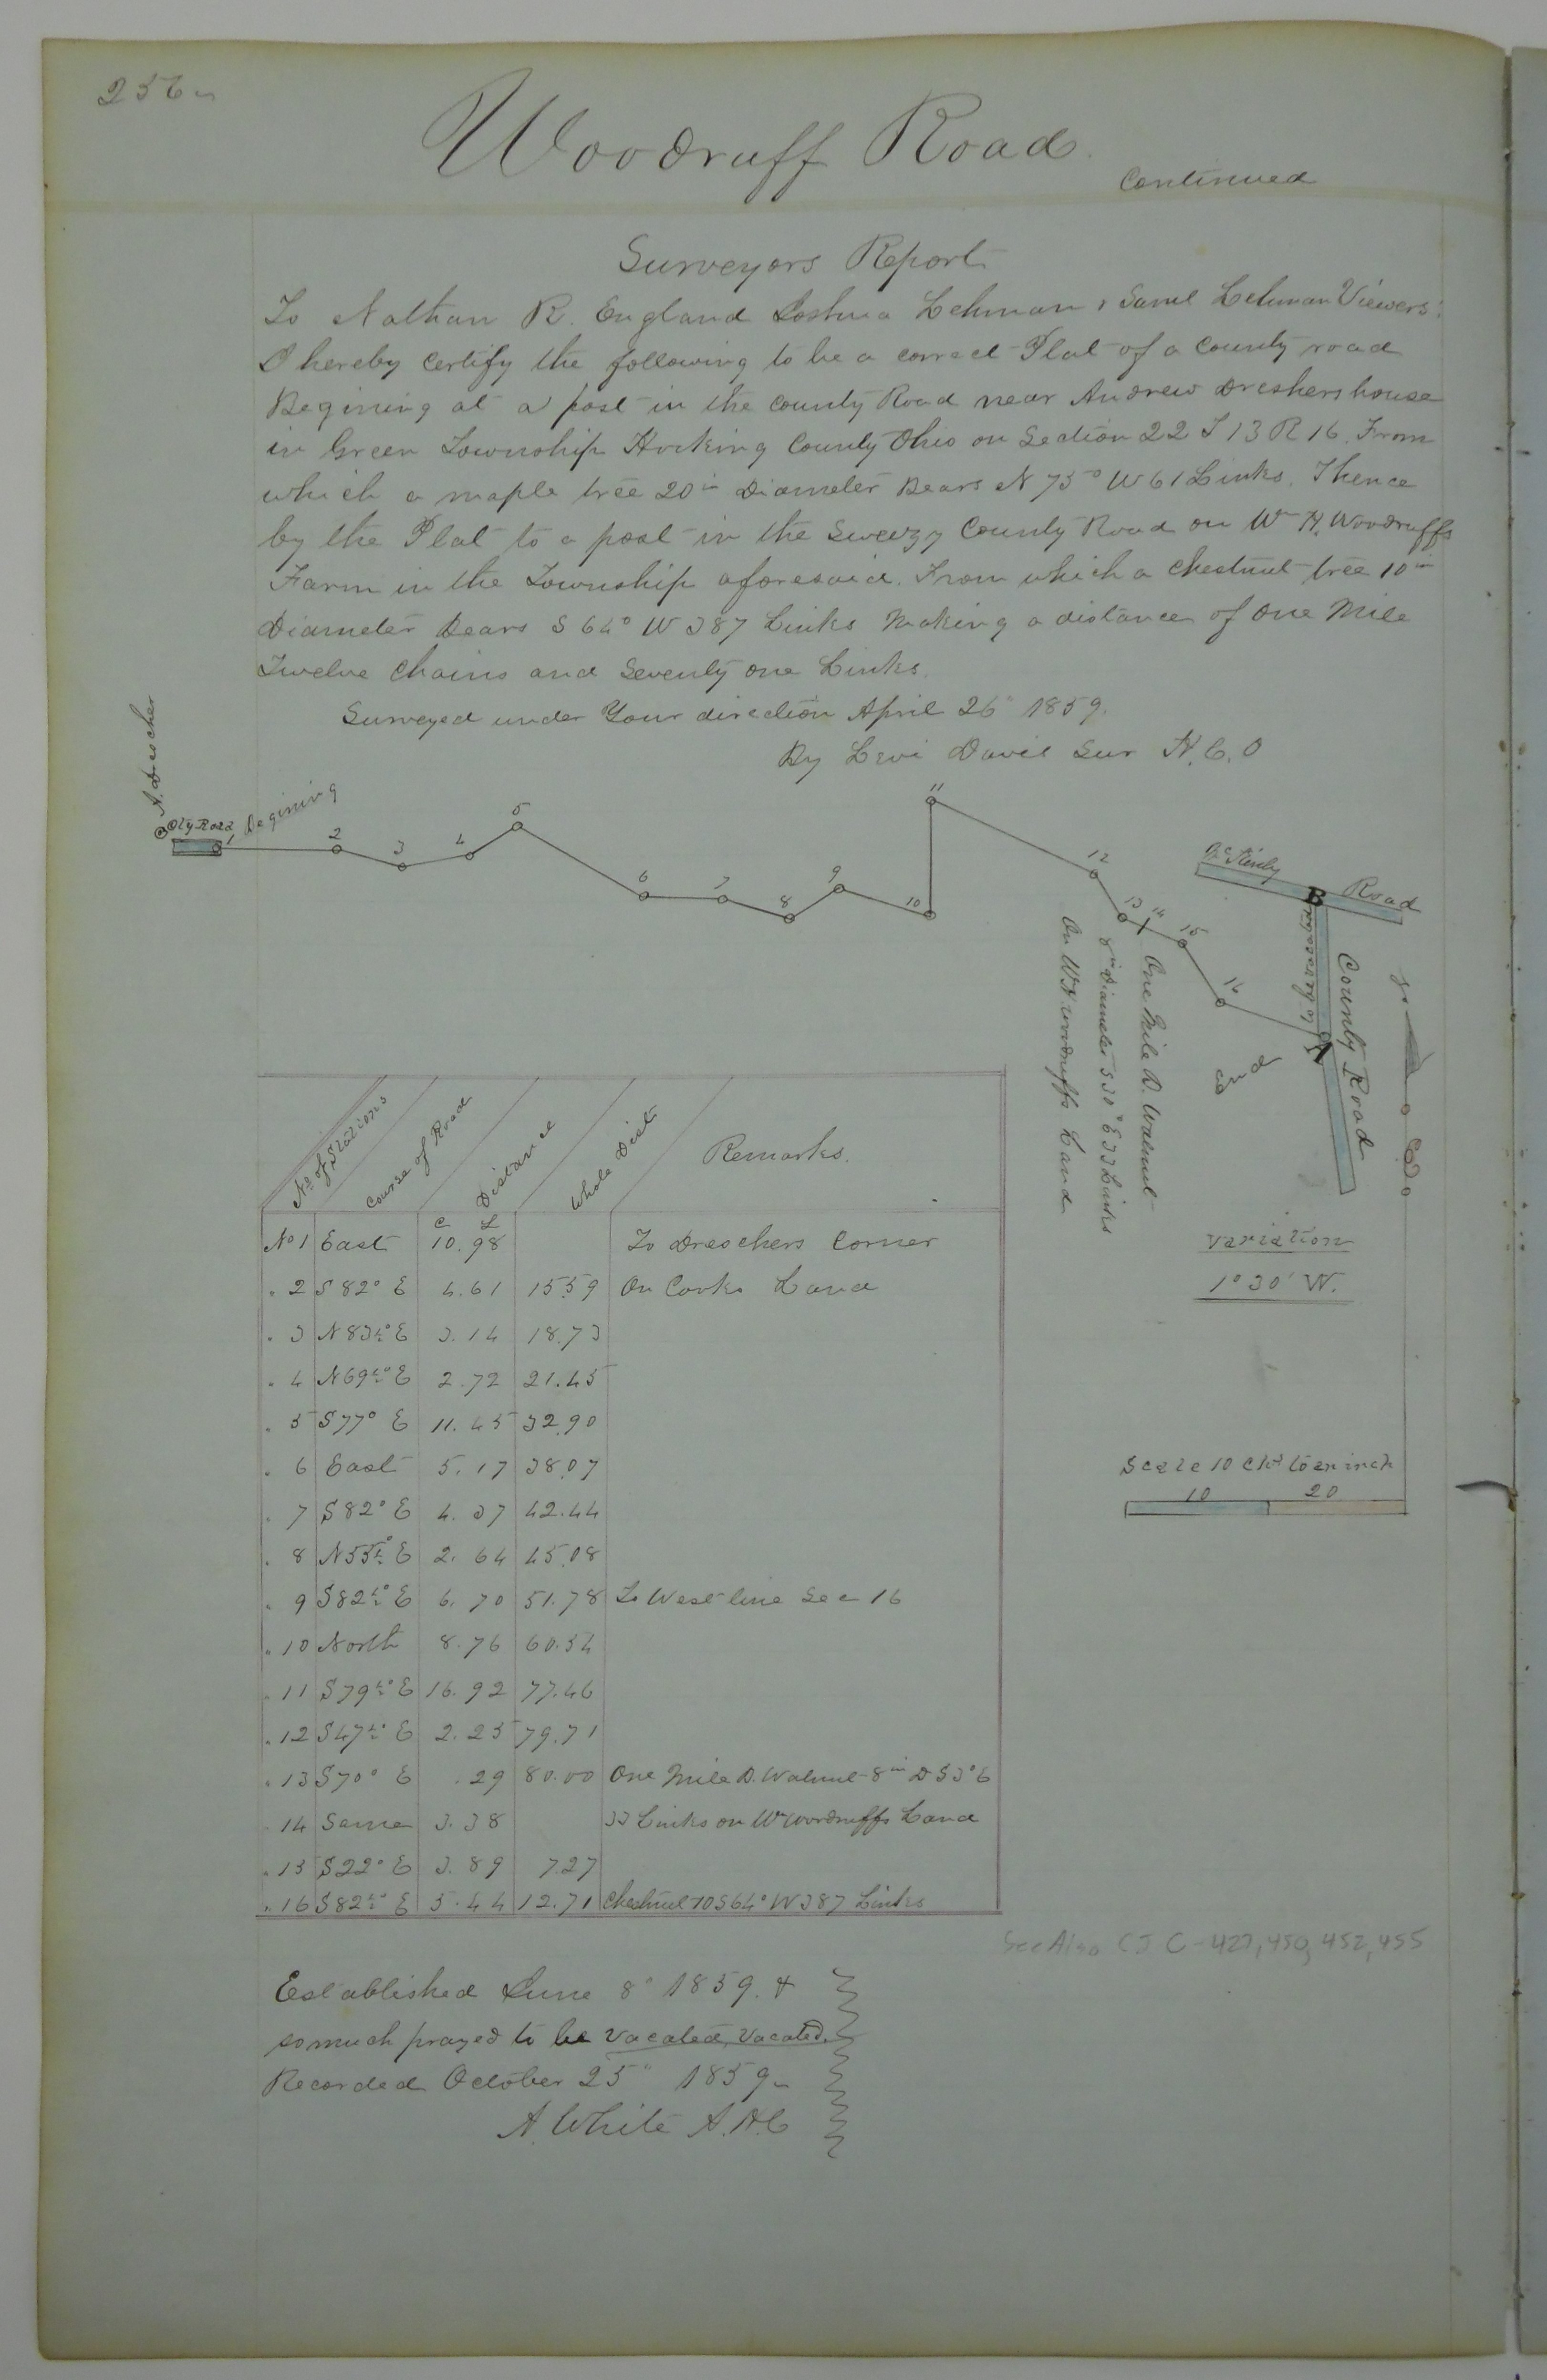 256
Woodruff Road
Continued
Surveyors Report
To Nathan R. England Joshua Lehman & Saml Lehman Viewers:
I hereby Certify the following to be a correct Plat of a County road
Begining at a post in the County Road near Andrew Dreshers house
in Green Township Hocking County Ohio on Section 22 T 13 R 16. From
which a maple tree 20 in Diameter Bears N 75° W 61 Links. Thence
by the Plat to a post in the Sweazy County Road on Wm H. Woodruffs
Farm in the Township aforesaid. From which a Chestnut tree 10 in
Diameter Bears S 64° W 387 Links Making a distance of One Mile
Twelve Chains and Seventy one Links.
Surveyed under Your direction April 26" 1859.
By Levi Davis Sur H. C. O
A. Drescher
Cty Road
Begining
1
2
3
4
5
6
7
8
9
10
11
12
13
14
15
16
Road
B
County Road
A
End
One Mile B. Walnut
8 in Diameter S 30° E 33 Links
On W H Woodruffs Land
Variation
1° 30' W.
Scale 10 Chs to an inch
10 20
No of Stations Course of Road Distance Whole Dist Remarks.
C L
No 1 East 10.98 To Dreschers Corner
" 2 S 82° E 4.61 15.59 On Cooks Land
" 3 N 83½° E 3.14 18.73
" 4 N 69½° E 2.72 21.45
" 5 S 77° E 11.45 32.90
" 6 East 5.17 38.07
" 7 S 82° E 4.37 42.44
" 8 N 55½° E 2.64 45.08
" 9 S 82½° E 6.70 51.78 To West line Sec 16
" 10 North 8.76 60.54
" 11 S 79½° E 16.92 77.46
" 12 S 47½° E 2.25 79.71
" 13 S 70° E .29 80.00 One Mile B. Walnut 8 in D S 3° E
14 Same 3.38 33 Links on Wm Woodruffs Land
" 15 S 22° E 3.89 7.27
" 16 S 82½° E 5.44 12.71 Chestnut 10 S 64° W 387 Links
See Also CJ C-427, 450, 452, 455
Established June 8" 1859. &
so much prayed to be Vacated, Vacated.
Recorded October 25" 1859
A. White A. H. C